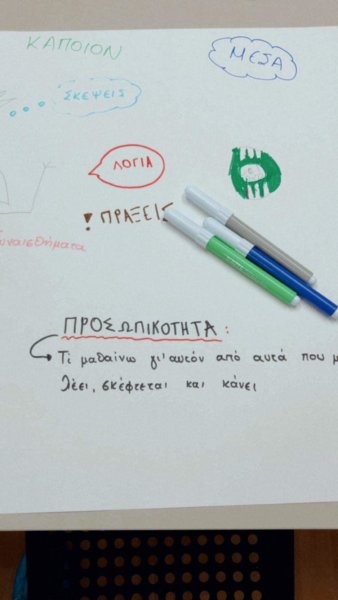 ΚΑΠΟΙΟΝ
ΜΕΣΑ
ΣΚΕΨΕΙΣ
ΛΟΓΙΑ
! ΠΡΑΞΕΙΣ
υναισθήματα
ΠΡΟΣΩΠΙΚΟΤΗΤΑ :
Τι μαθαίνω γι'αυτόν από αυτά που μ
λέει, σκέφτεται και κάνει